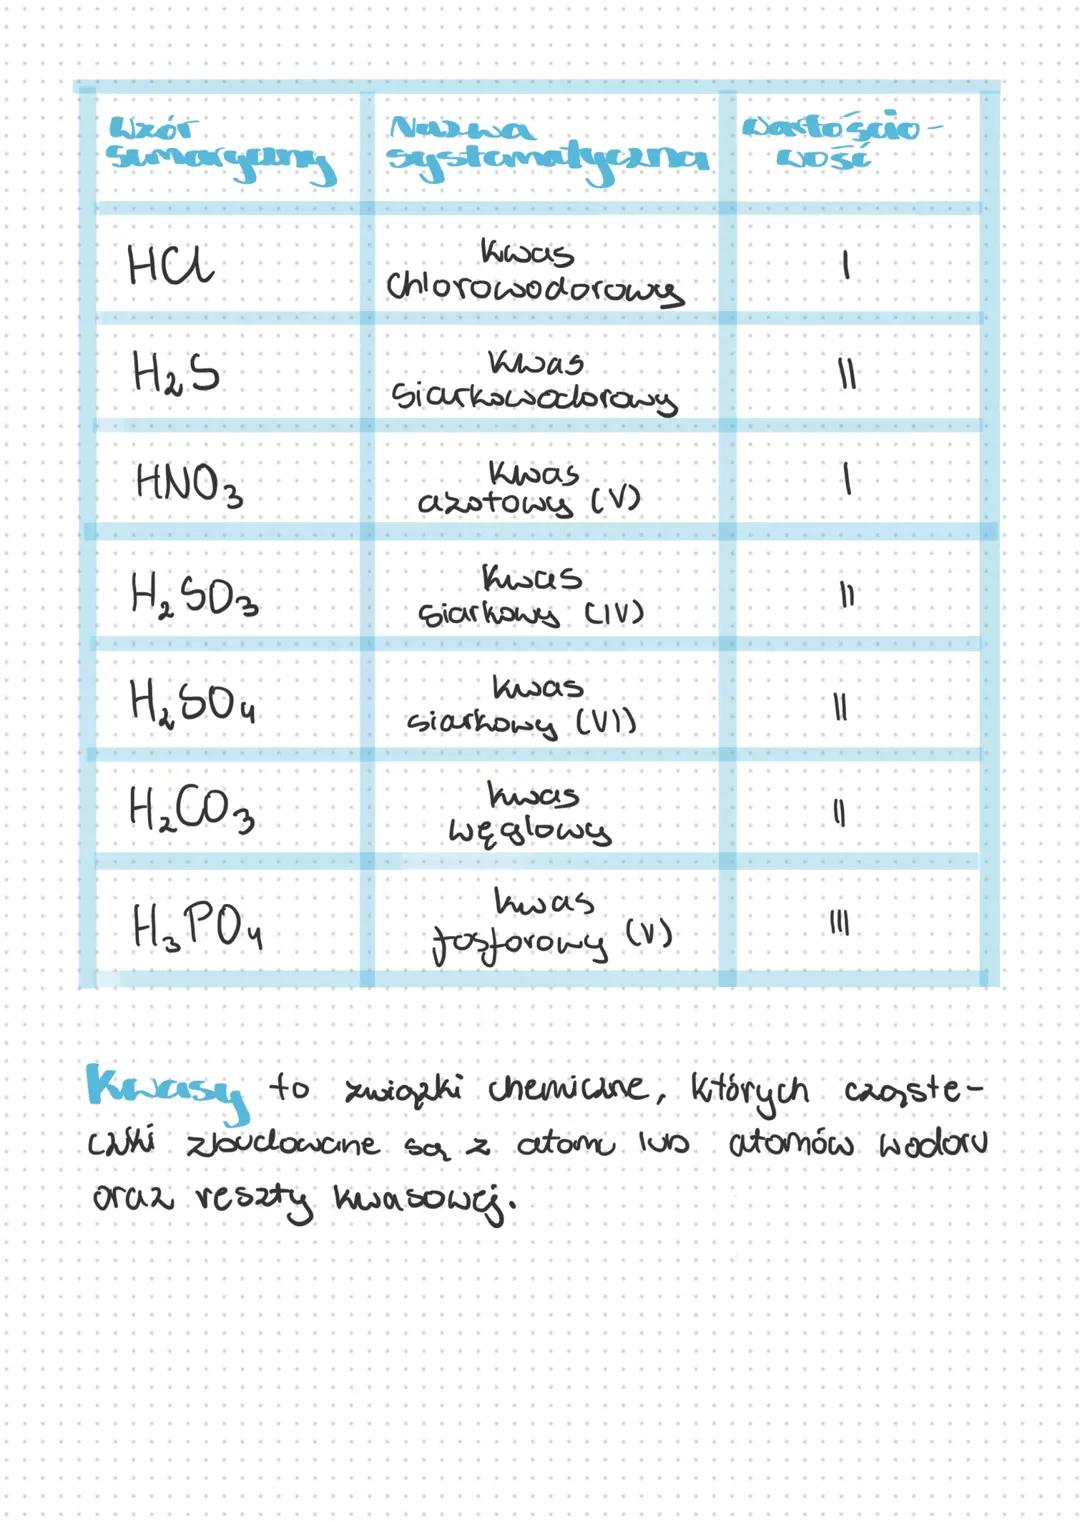 Wzór
sumaryczny
Nazwa
systematyczna
Wartościo-
wość
HCl
Kwas
chlorowodorowy
I
H₂S
Kwas
siarkowodorowy
II
HNO₃
Kwas
azotowy (V)
I
H₂SO₃
Kwas
siarkowy (IV)
II
H₂SO₄
kwas
siarkowy (VI)
II
H₂CO₃
kwas
węglowy
II
H₃PO₄
kwas
fosforowy (V)
III
Kwasy to związki chemiczne, których cząste-
czki zbudowane są z atomu lub atomów wodoru
oraz reszty kwasowej.